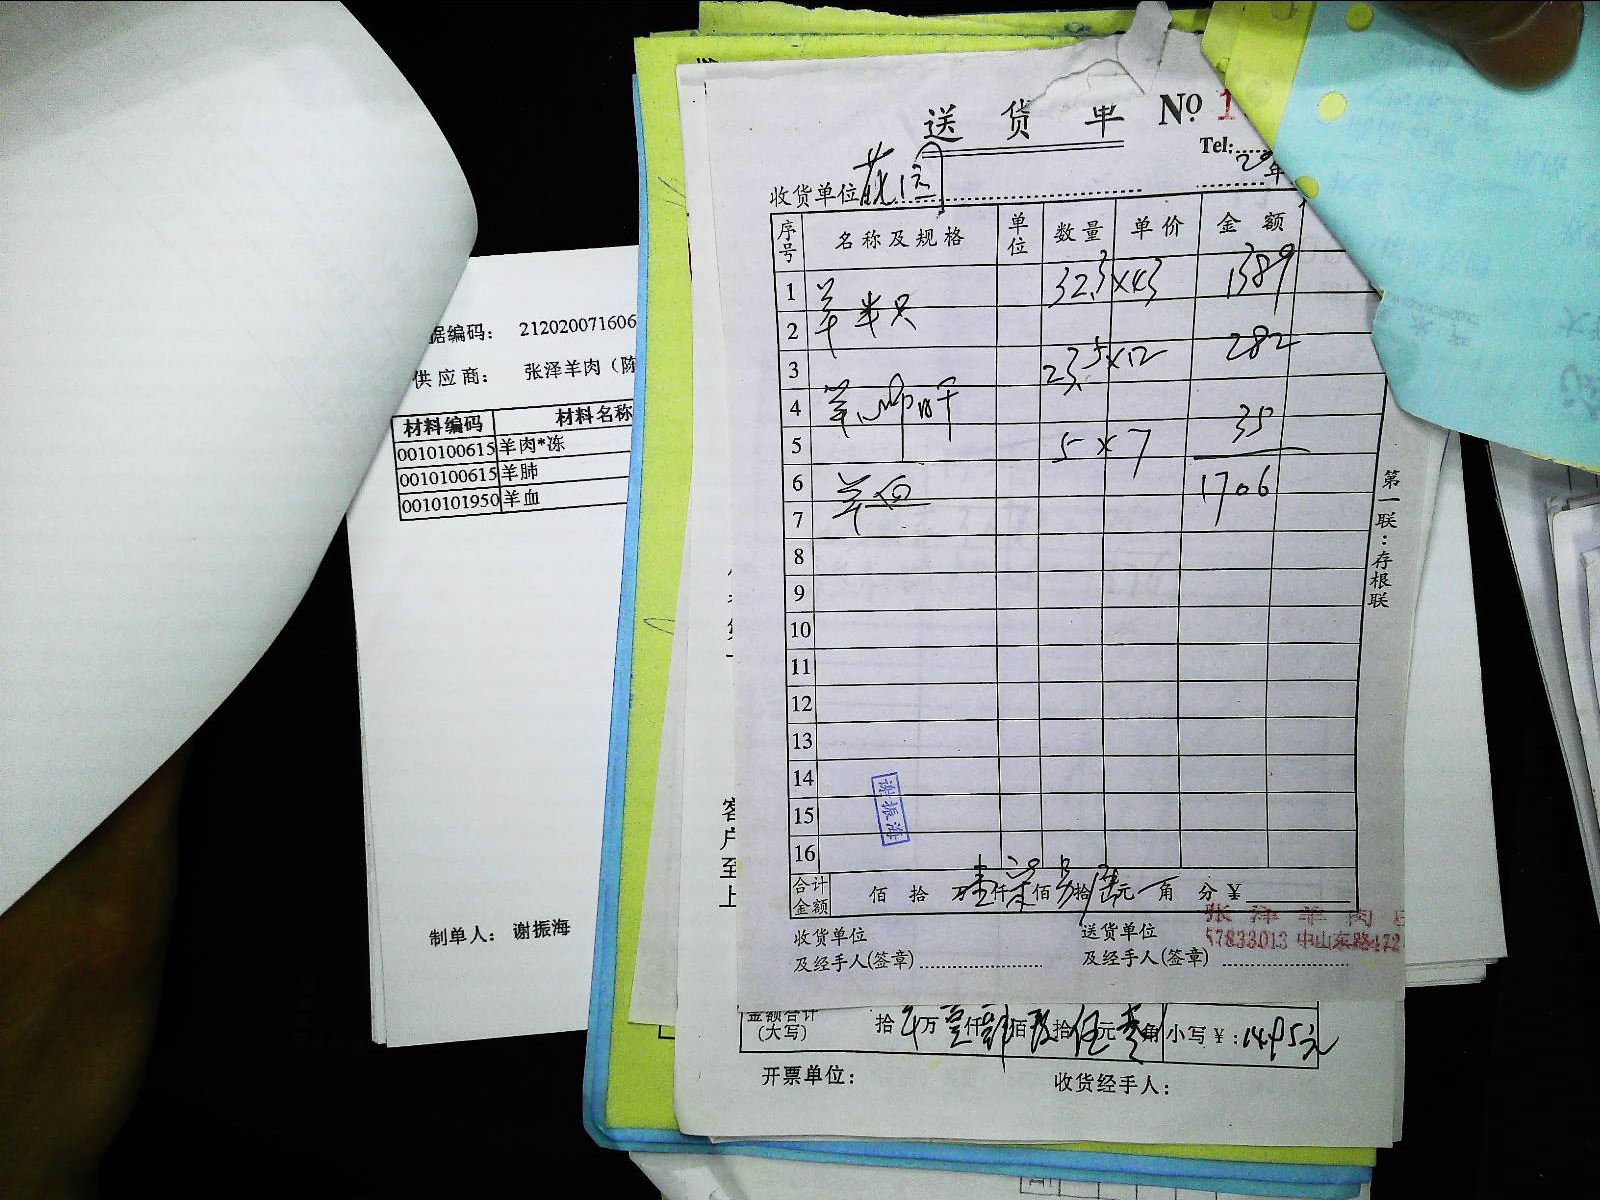 送 货 单 № 1
Tel:
收货单位
20 年
序号 名称及规格 单位 数量 单价 金额
1 羊半只 32.3×43 1389
2
3 23.5×12 282
4 羊心肺肝
5 5×7 35
6 羊血 1706
7
8
9
10
11
12
13
14
15
16
谢振海
合计金额 佰 拾 万壹仟柒佰另拾陆元 角 分 ¥
收货单位
及经手人(签章)
送货单位
及经手人(签章)
张泽羊肉
57833013 中山东路472
第一联:存根联
据编码: 212020071606
供应商: 张泽羊肉(陈
材料编码 材料名称
0010100615 羊肉*冻
0010100615 羊肺
0010101950 羊血
制单人: 谢振海
客户至上
金额合计
(大写) 拾 万 仟 佰 拾 元 角 小写¥:
开票单位: 收货经手人: